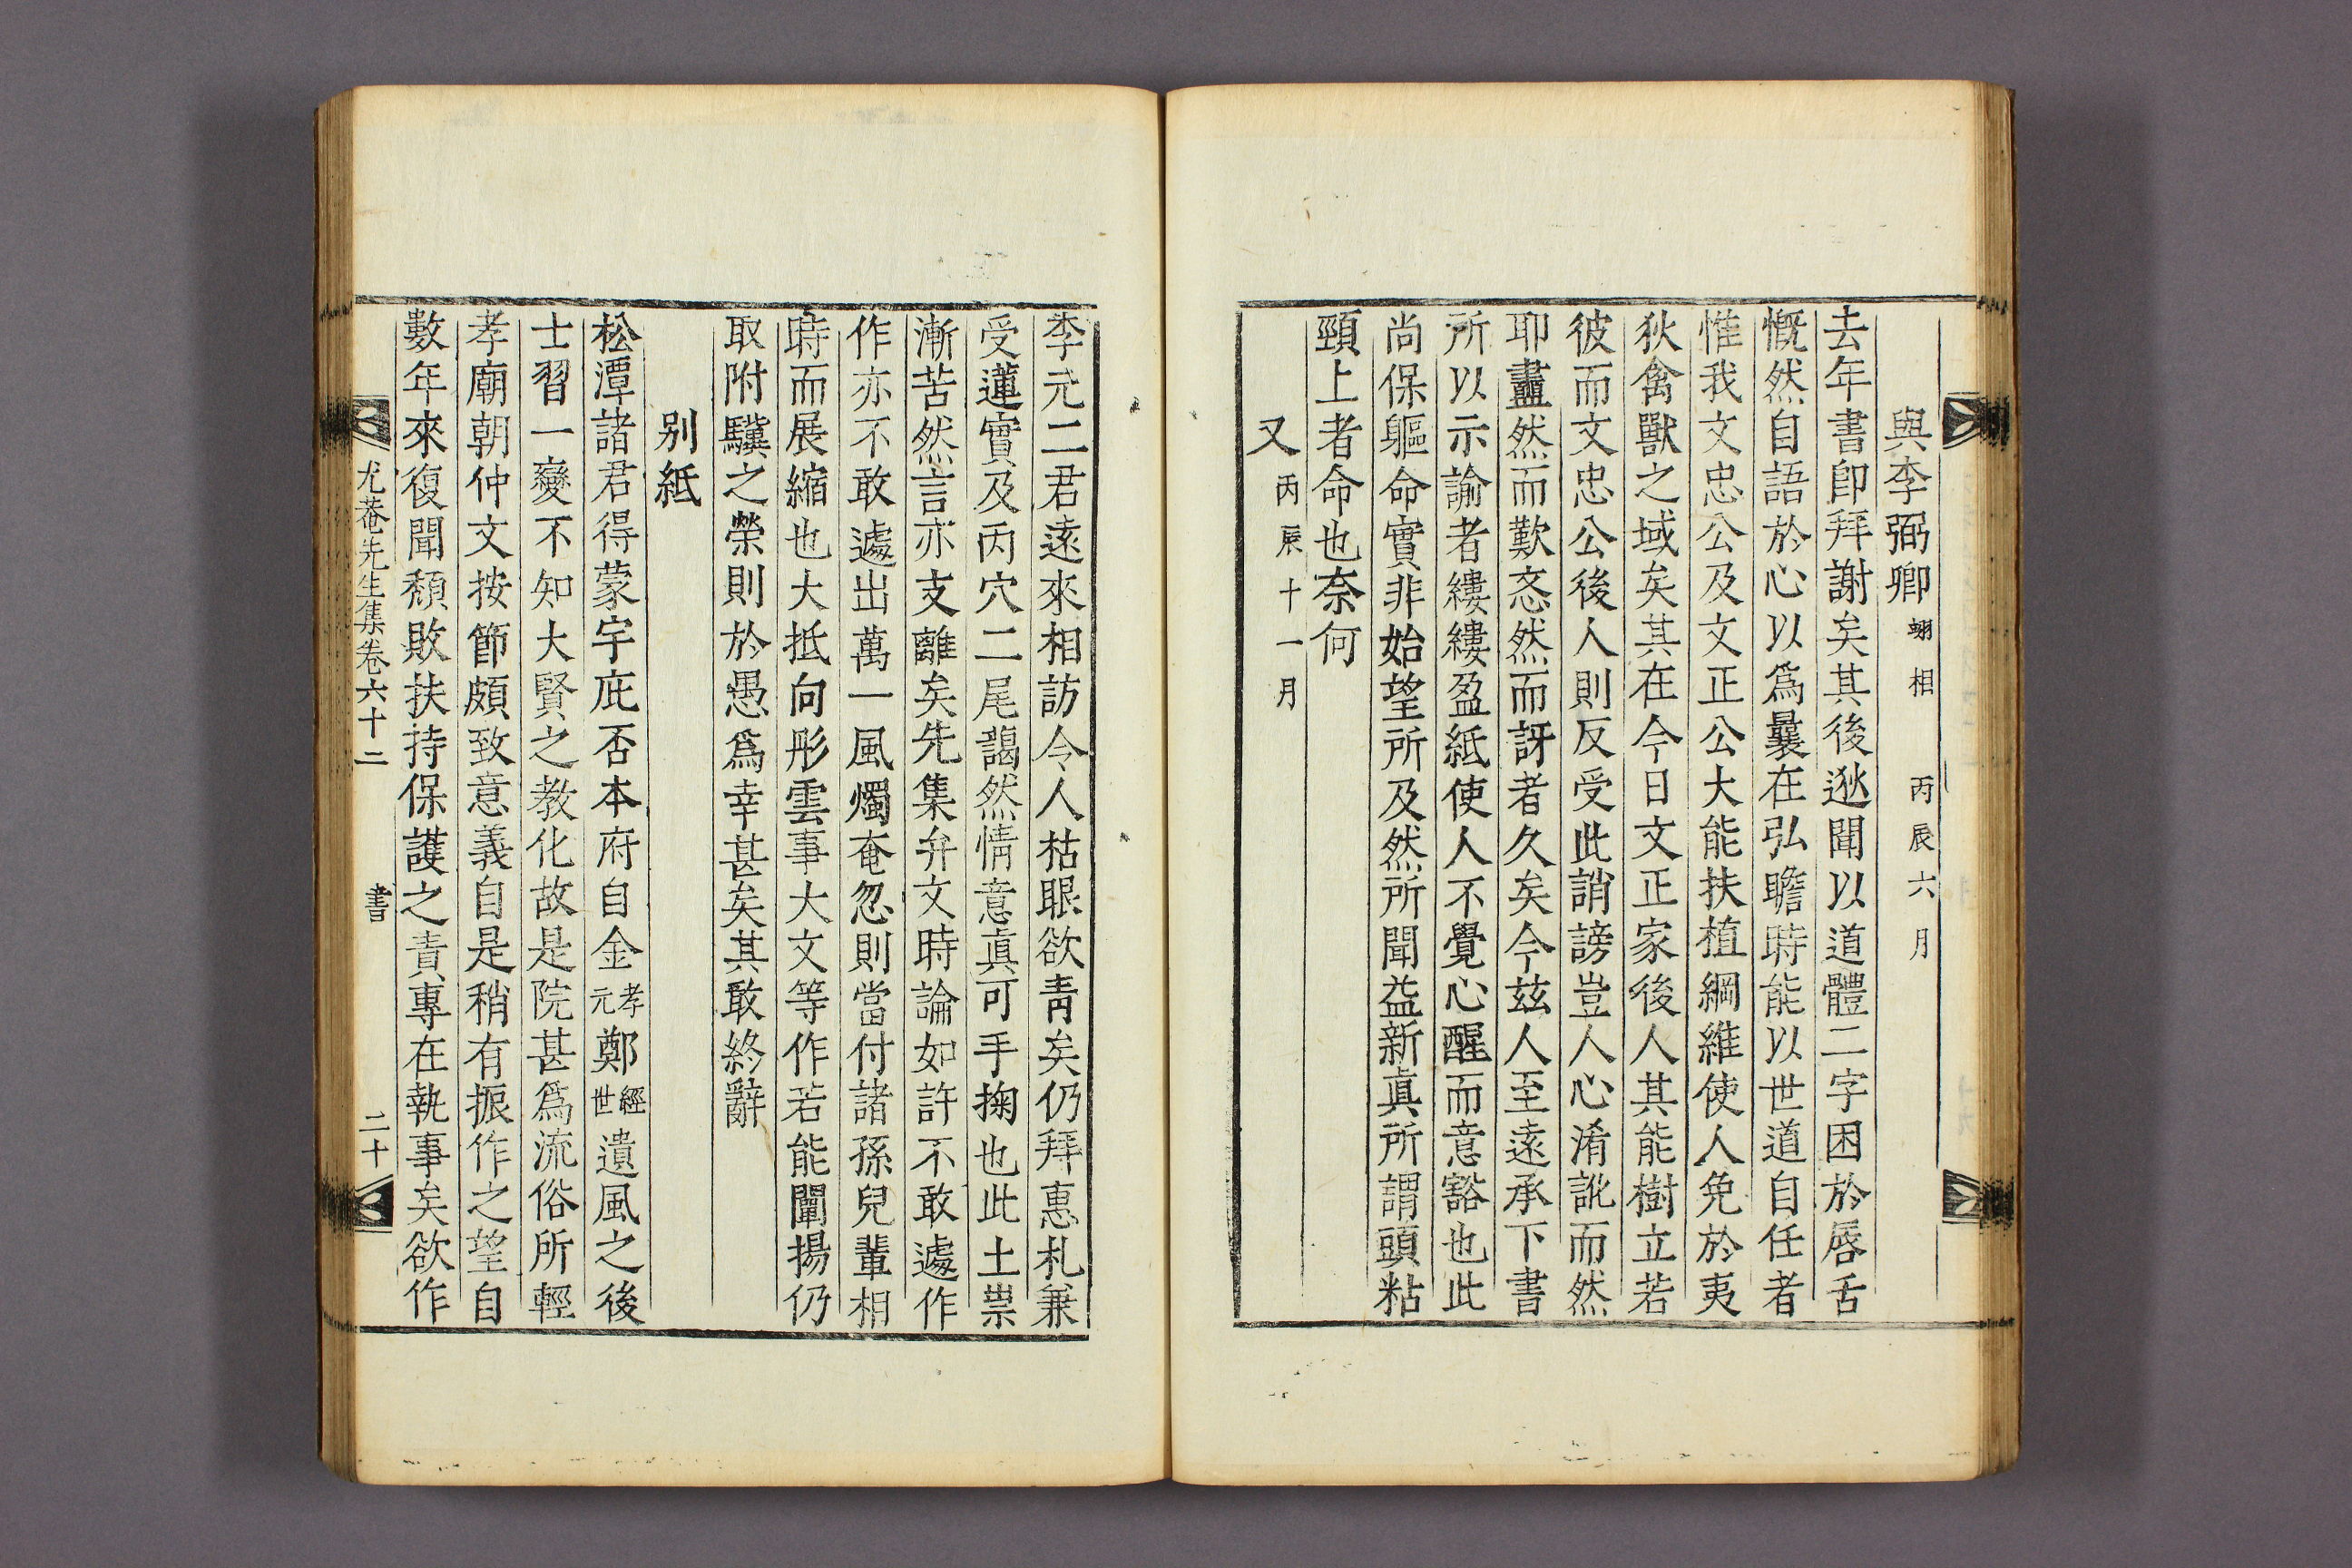 與李弼卿 翊相 丙辰六月
去年書卽拜謝矣其後逖聞以道體二字困於唇舌
慨然自語於心以爲曩在弘瞻時能以世道自任者
惟我文忠公及文正公大能扶植綱維使人免於夷
狄禽獸之域矣其在今日文正家後人其能樹立若
彼而文忠公後人則反受此誚謗豈人心淆訛而然
耶衋然而歎忞然而訝者久矣今玆人至遠承下書
所以示諭者縷縷盈紙使人不覺心醒而意豁也此
尚保軀命實非始望所及然所聞益新眞所謂頭粘
頸上者命也奈何
又 丙辰十一月
李元二君遠來相訪令人枯眼欲靑矣仍拜惠札兼
受蓮實及丙穴二尾藹然情意眞可手掬也此土祟
漸苦然言亦支離矣先集弁文時論如許不敢遽作
作亦不敢遽出萬一風燭奄忽則當付諸孫兒輩相
時而展縮也大抵向彤雲事大文等作若能闡揚仍
取附驥之榮則於愚爲幸甚矣其敢終辭
別紙
松潭諸君得蒙宇庇否本府自金孝元鄭經世遺風之後
士習一變不知大賢之教化故是院甚爲流俗所輕
孝廟朝仲文按節頗致意義自是稍有振作之望自
數年來復聞頹敗扶持保護之責專在執事矣欲作
尤菴先生集卷六十二 書 二十